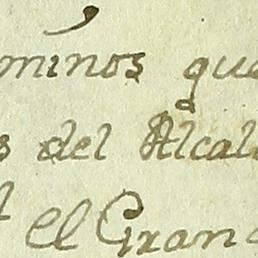 minos qu
del Alcal
el Gran